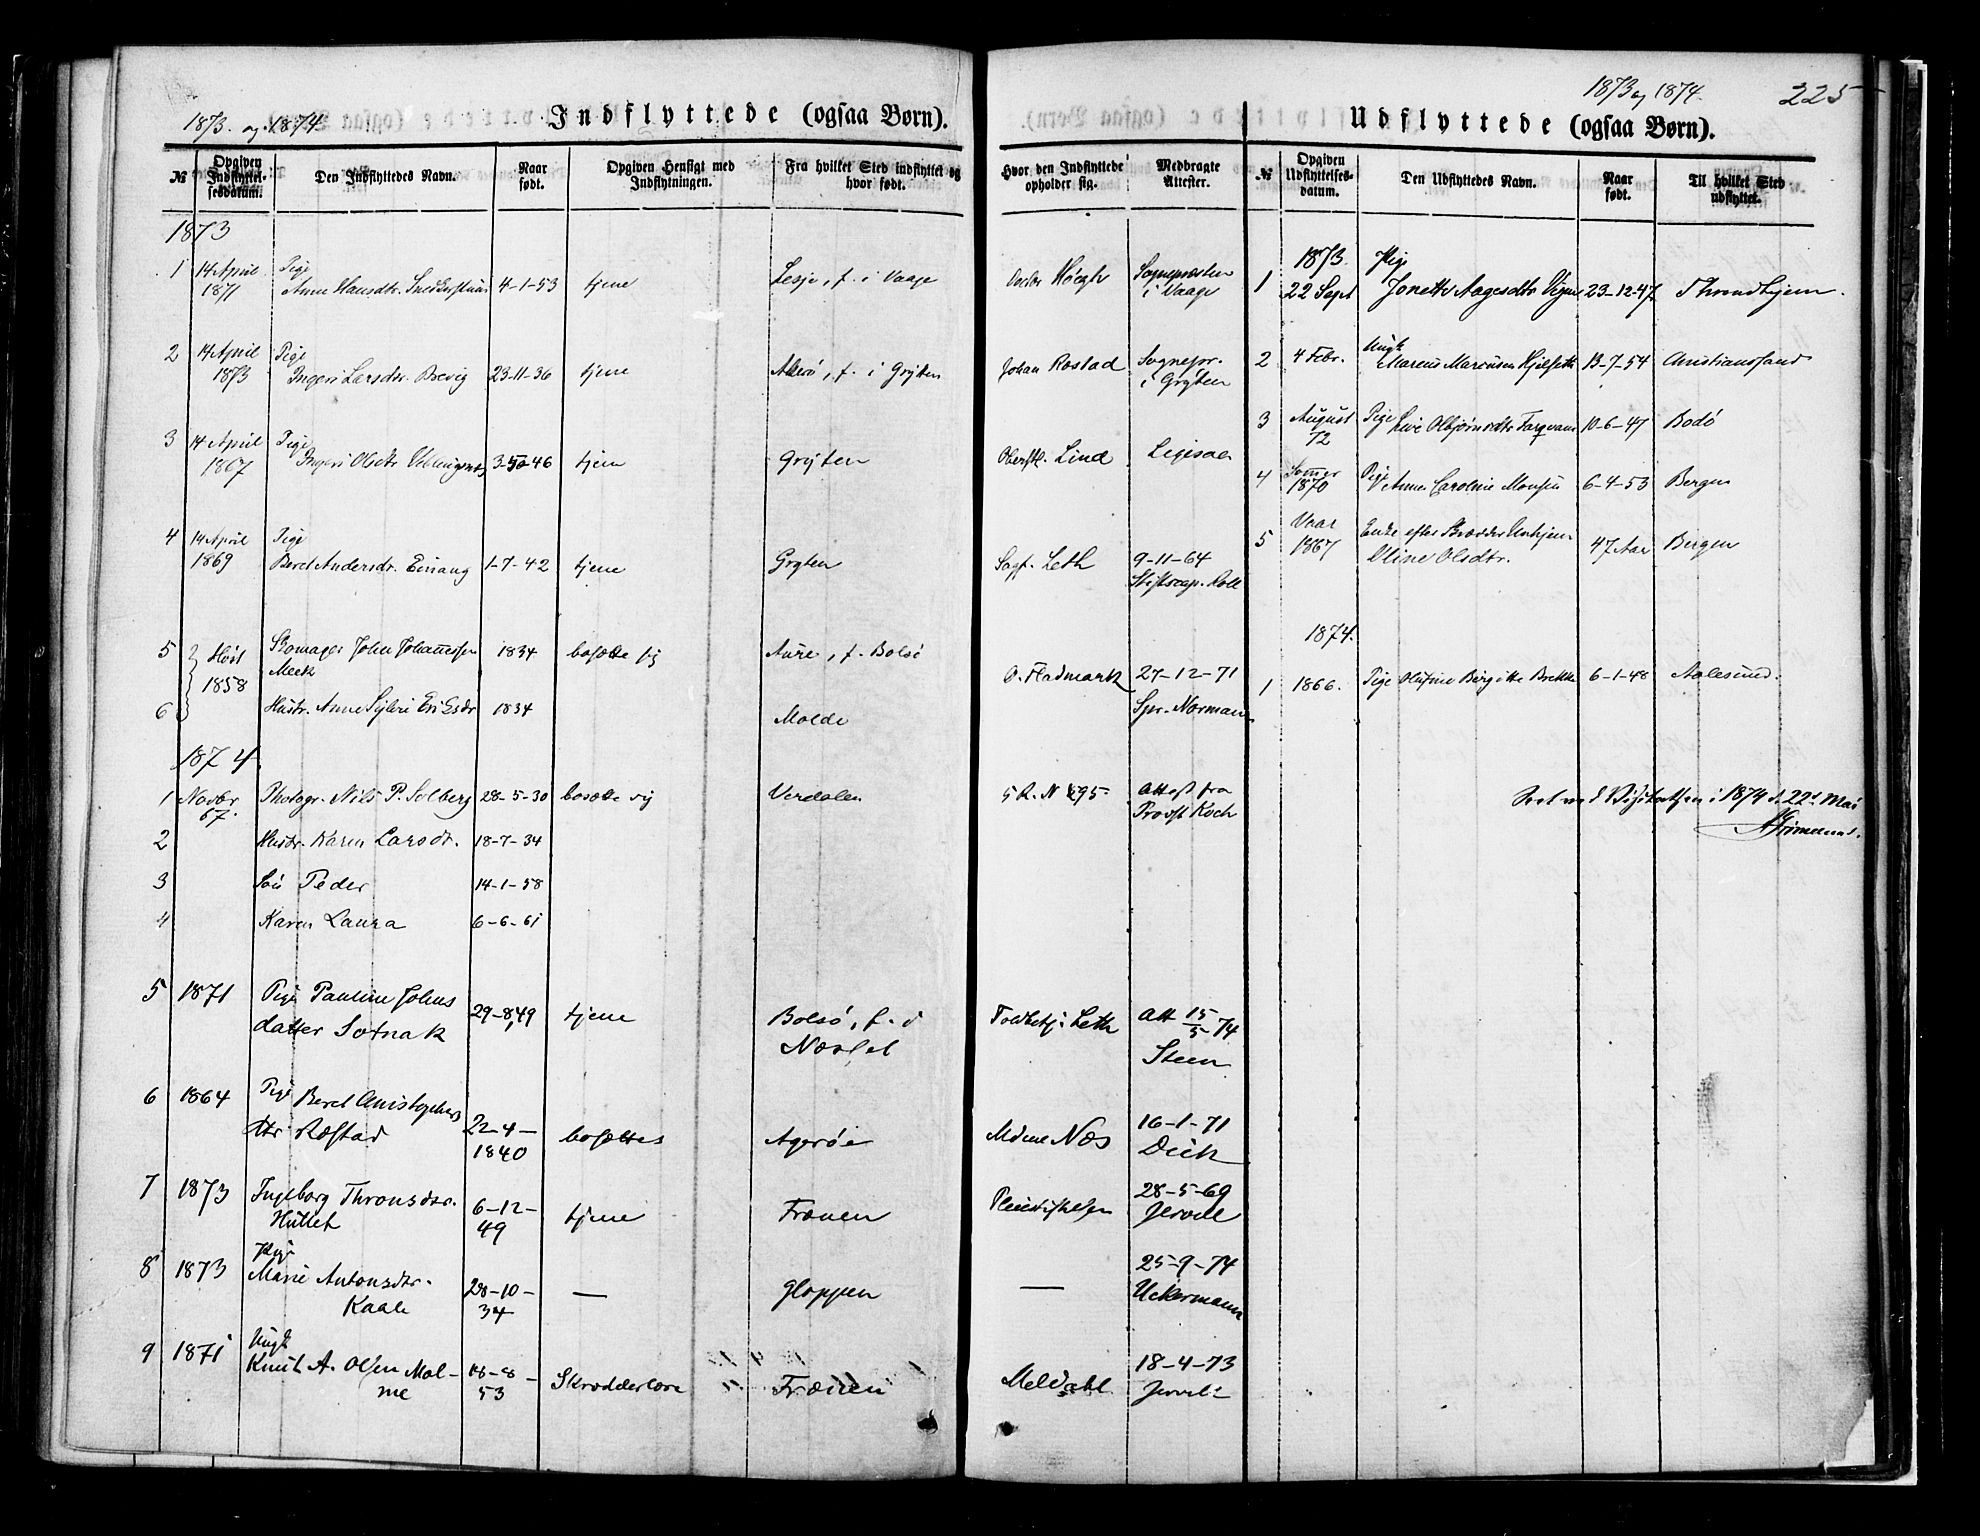 1873. og 1874.
Indflyttede (ogsaa Børn).
№
Opgiven Indflyttelsesdatum.
Den Indflyttedes Navn.
Naar født.
Opgiven Hensigt med Indflytningen.
Fra hvilket Sted indflyttet og hvor født.
Hvor den Indflyttede opholder sig.
Medbragte Attester.
1873
1 14 April Pige
1871 Anne Hansdtr. 4-1-53 tjene Lesje, f. i Vaage Høegh Sognepræsten i Vaage
2 14 April Pige
1873 Ingeri Larsdtr. Brevig 23-11-36 tjene Akerø, f. i Gryten Johan Rostad Sognepr. i Gryten
3 14 April Pige
1867 Ingeri Olsdtr. 46 tjene Gryten Oberstl. Lind
4 14 April Pige
1869 Beret Andersdr. Einang 1-7-42 tjene Gryten Sagf. Leth 9-11-64
Stiftscap. Roll
5 Høst Skomager John Johannessen 1834 bosætte sig Aure, f. Bolsø O. Fladmark 27-12-71
1858 Meek
6 Hustr. Anne Eriksdr 1834 Molde Spr. Normann
1874.
1 Novbr. Photogr. Nils P. Solberg 28-5-30 bosætte sig Verdalen Attest fra
67. Provst Koch
2 Hustr. Karen Larsdr. 18-7-34
3 Søn Peder 14-1-58
4 Karen Laura 6-6-61
5 1871 Pige Pauline Johns 29-8-49 tjene Bolsø, f. i Toldbetj. Leth Att 15/5-74
datter Sotnak Næsset Steen
6 1864 Pige Beret Christophers 22-4- bosættes Agerøe Mdme Næs 16-1-71
dtr. Røstad 1840 Dick
7 1873 Ingeborg Thronsdtr. 6-12- tjene Frænen 28-5-69
Hullet 49
8 1873 Pige
Marie Antonsdtr. 28-10- — Gloppen — 25-9-74
Kaale 34 Uckermann
9 1871 Ungk
Knut A. Olsen Mal- 53 Skrædderlære Frænen Meldahl 18-4-73
me
1873 og 1874.
225
Udflyttede (ogsaa Børn).
№
Opgiven Udflyttelsesdatum.
Den Udflyttedes Navn.
Naar født.
Til hvilket Sted udflyttet.
1873. Pige
1 22 Sept Jonette Aagesdtr 23-12-47 Throndhjem.
2 4 Febr. Ungk
Marcus Marcusen Hjelset 13-7-54 Christianssand
3 August Pige Olbjørnsdtr 10-6-47 Bodø
72
4 Somer Pige Anne Caroline Monsen 6-4-53 Bergen
1870
5 Vaar Enke efter
1867 Oline Olsdtr. 47 Aar Bergen
1874.
1 1866. Pige Olufine Birgitte Brekke 6-1-48 Aalesund.
Seet ved Visitatsen i 1874 d. 22d Mai